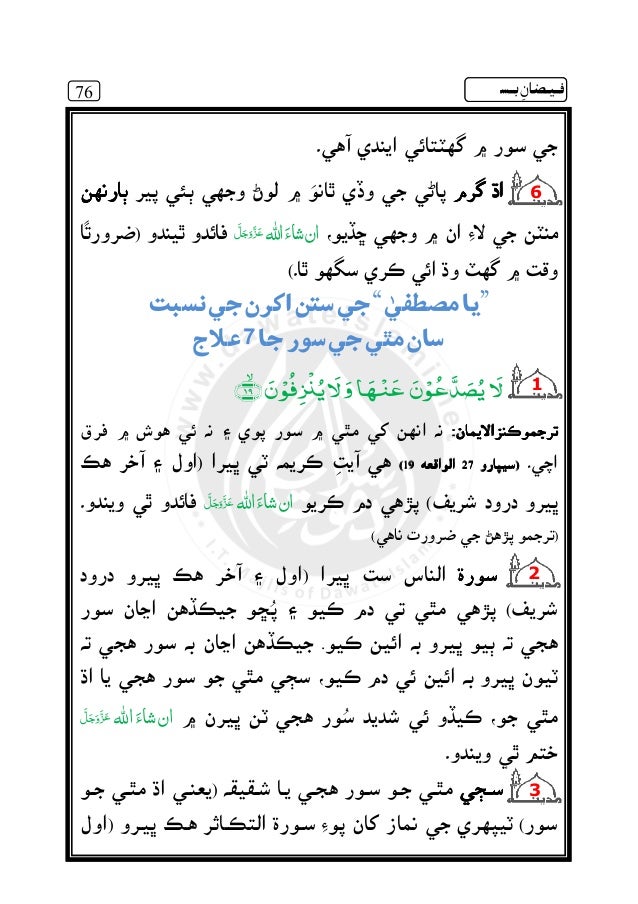 فيضانِ بسم
76
جي سور ۾ گهٽتائي ايندي آهي.
6 اڌ گرم پاڻي جي وڏي ٿانوَ ۾ لوڻ وجهي ٻئي پير ٻارنهن
منٽن جي لاءِ ان ۾ وجهي ڇڏيو، ان شاءَالله عَزَّوَجَلَّ فائدو ٿيندو (ضرورتًا
وقت ۾ گهٽ وڌ ائي ڪري سگهو ٿا.)
”يا مصطفيٰ“ جي ستن اکرن جي نسبت
سان مٿي جي سور جا 7 علاج
1 لَا يُصَدَّعُوْنَ عَنْهَا وَ لَا يُنْزِفُوْنَ ۙ﴿۱۹﴾
ترجموڪنزالايمان: نہ انهن کي مٿي ۾ سور پوي ۽ نہ ئي هوش ۾ فرق
اچي. (سيپارو 27 الواقعہ 19) هي آيتِ ڪريمہ ٽي ڀيرا (اول ۽ آخر هڪ
ڀيرو درود شريف) پڙهي دم ڪريو ان شاءَالله عَزَّوَجَلَّ فائدو ٿي ويندو.
(ترجمو پڙهڻ جي ضرورت ناهي)
2 سورة الناس ست ڀيرا (اول ۽ آخر هڪ ڀيرو درود
شريف) پڙهي مٿي تي دم ڪيو ۽ پُڇو جيڪڏهن اڃان سور
هجي تہ ٻيو ڀيرو بہ ائين ڪيو. جيڪڏهن اڃان بہ سور هجي تہ
ٽيون ڀيرو بہ ائين ئي دم ڪيو، سڄي مٿي جو سور هجي يا اڌ
مٿي جو، ڪيڏو ئي شديد سُور هجي ٽن ڀيرن ۾ ان شاءَ الله عَزَّوَجَلَّ
ختم ٿي ويندو.
3 سڄي مٿي جو سور هجي يا شقيقہ (يعني اڌ مٿي جو
سور) ٽيپهري جي نماز کان پوءِ سورة التڪاثر هڪ ڀيرو (اول
www.dawateislami.net
I.T Majlis of DawateIslami